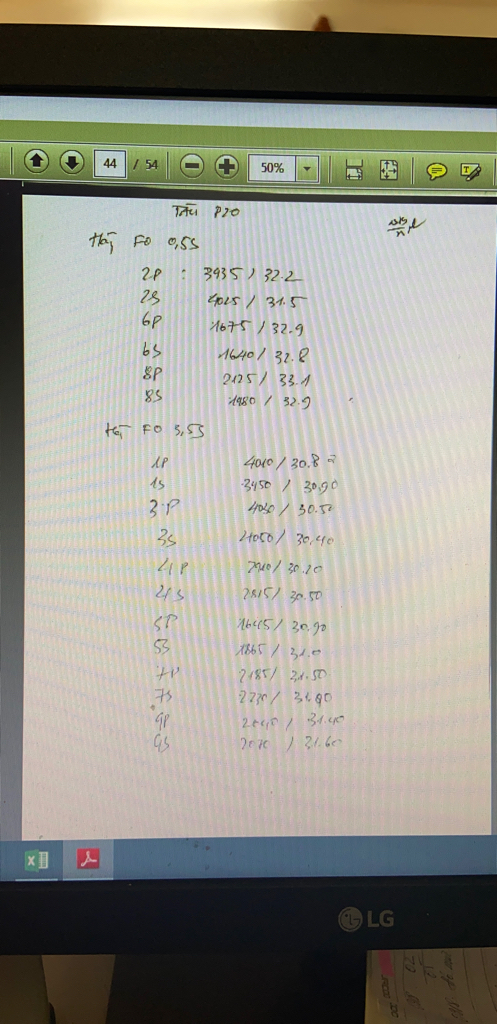 44 / 54 50%
TÀU P20
FO 0,5S
2P : 3935 / 32.2
2S 4025 / 31.5
6P 1675 / 32.9
6S 1640 / 32.8
8P 2125 / 33.1
8S 1980 / 32.9
FO 3,5S
1P 4010 / 30.8
1S 3450 / 30,90
3P 4030 / 30.50
3S 4050 / 30,40
4P
4S 2815 / 30.50
5P 1645 / 30,90
5S 1865 / 31.0
7P 2185 / 31.50
7S
9P / 31.40
9S / 31.60
LG